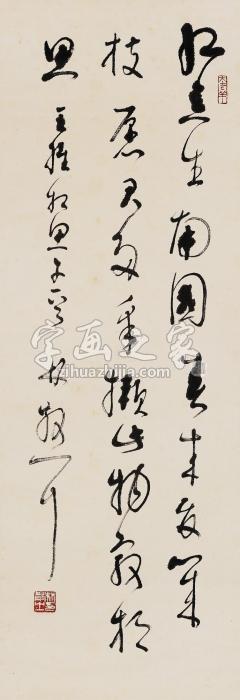 紅豆生南國春来發幾
枝願君多采擷此物最相
思 王維相思子 林散耳
字画之家
zihuazhijia.com